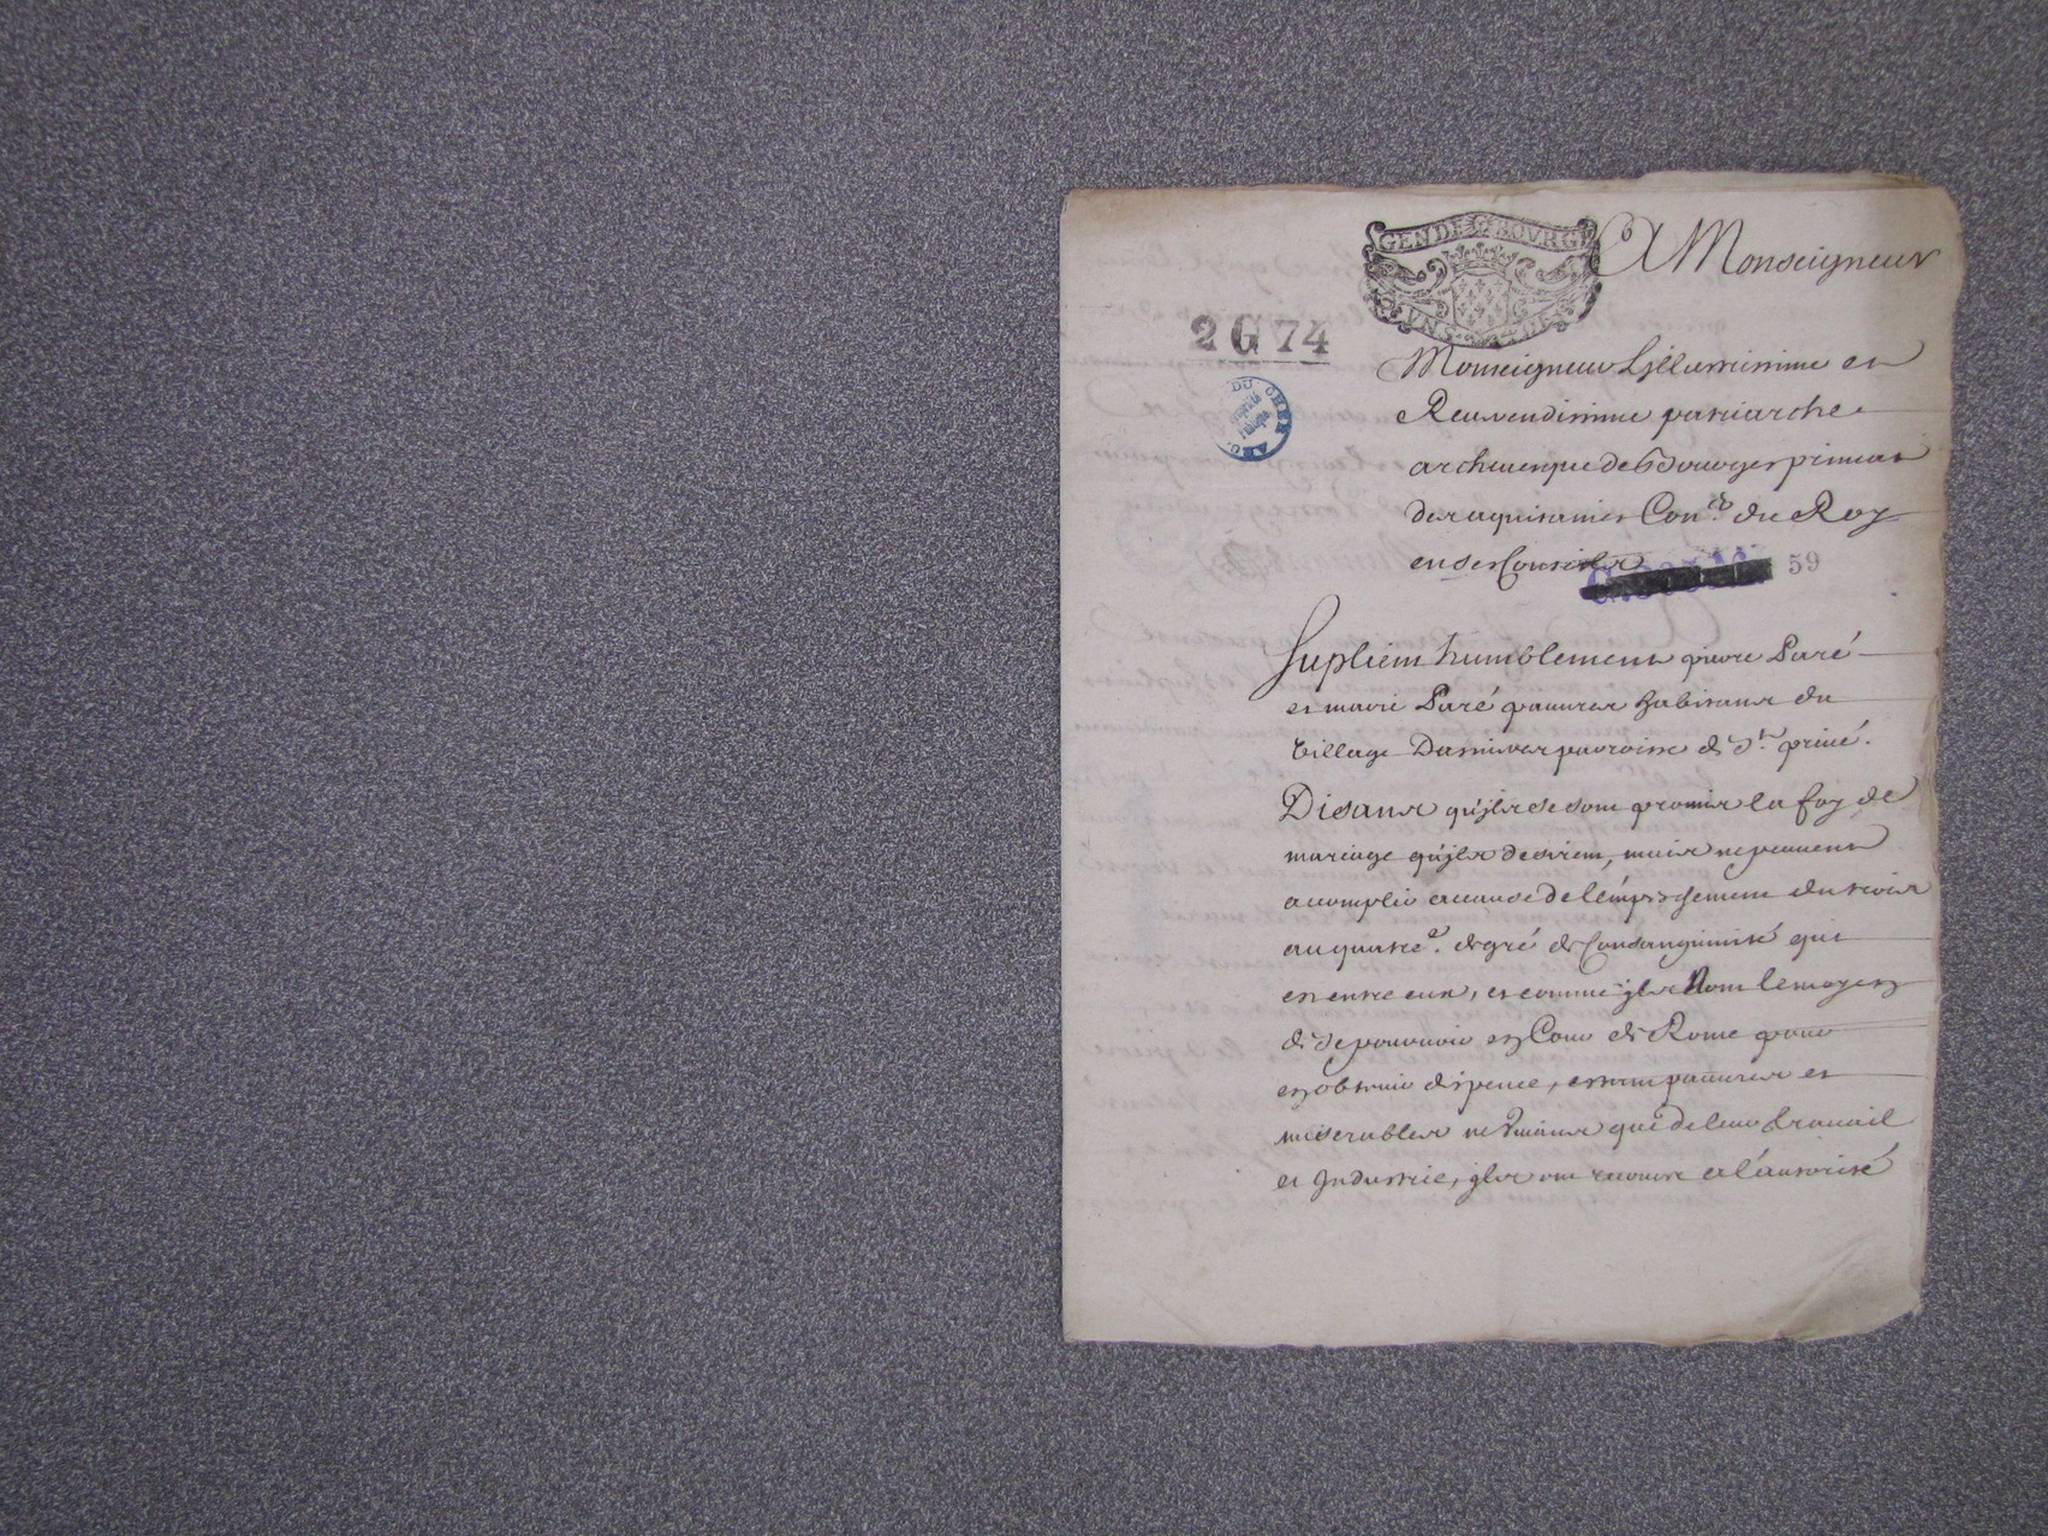 GEN DE BOVRG
VNS DE
A Monseigneur
2 G 74
DU CHER
ARC
Monseigneur Lillustrissime et
Reuerendissime patriarche
archeuesque de Bourges primat
des aquitaines Con.er du Roy
en ses Conseils
59
Suplient humblement pierre Paré
et marie Paré pauures habitans du
Village Dasnieres parroisse de St. priué.
Disant qu'jls se sont promis la foy de
mariage qu'jls desirent, mais ne peuuent
acomplir acause de lémpeschement du trois
au quatre.e degré de Consanguinité qui
est entre eux, et comme jls Nont le moyen
de se pouruoir en Cour de Rome pour
en obtenir dispence, estant pauures et
miserables ne viuans que de leur trauail
et Industrie, jls ont recours a l'autorité